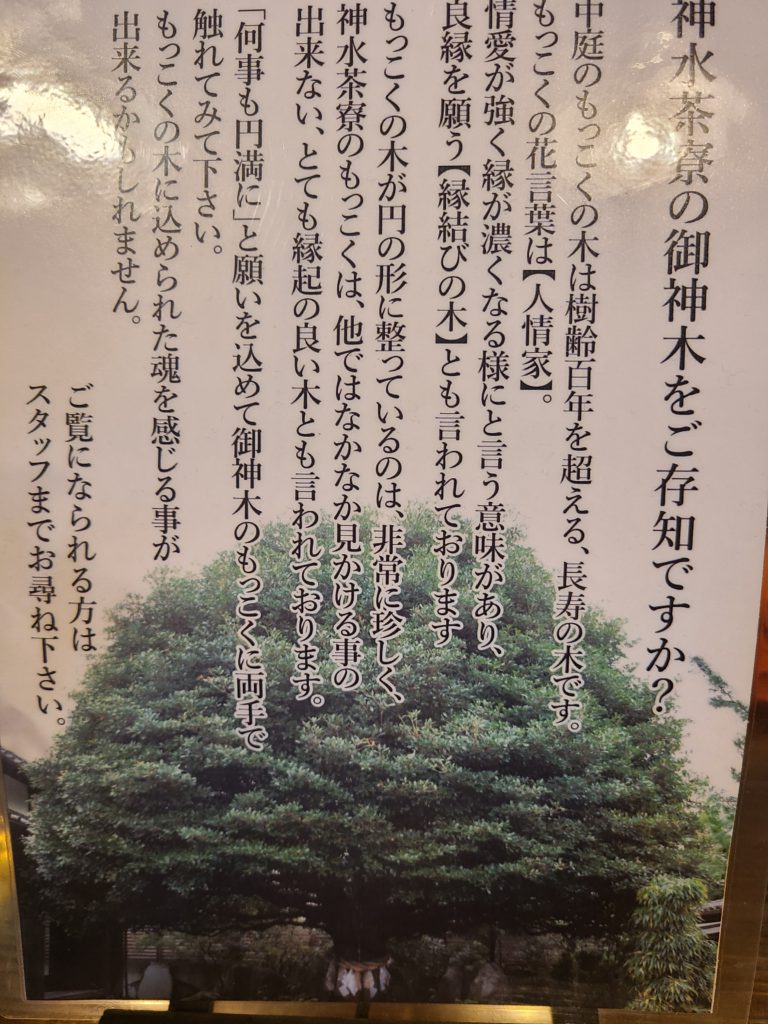 神水茶寮の御神木をご存知ですか？
中庭のもっこくの木は樹齢百年を超える、長寿の木です。
もっこくの花言葉は【人情家】。
情愛が強く縁が濃くなる様にと言う意味があり、
良縁を願う【縁結びの木】とも言われております
もっこくの木が円の形に整っているのは、非常に珍しく、
神水茶寮のもっこくは、他ではなかなか見かける事の
出来ない、とても縁起の良い木とも言われております。
「何事も円満に」と願いを込めて御神木のもっこくに両手で
触れてみて下さい。
もっこくの木に込められた魂を感じる事が
出来るかもしれません。
ご覧になられる方は
スタッフまでお尋ね下さい。